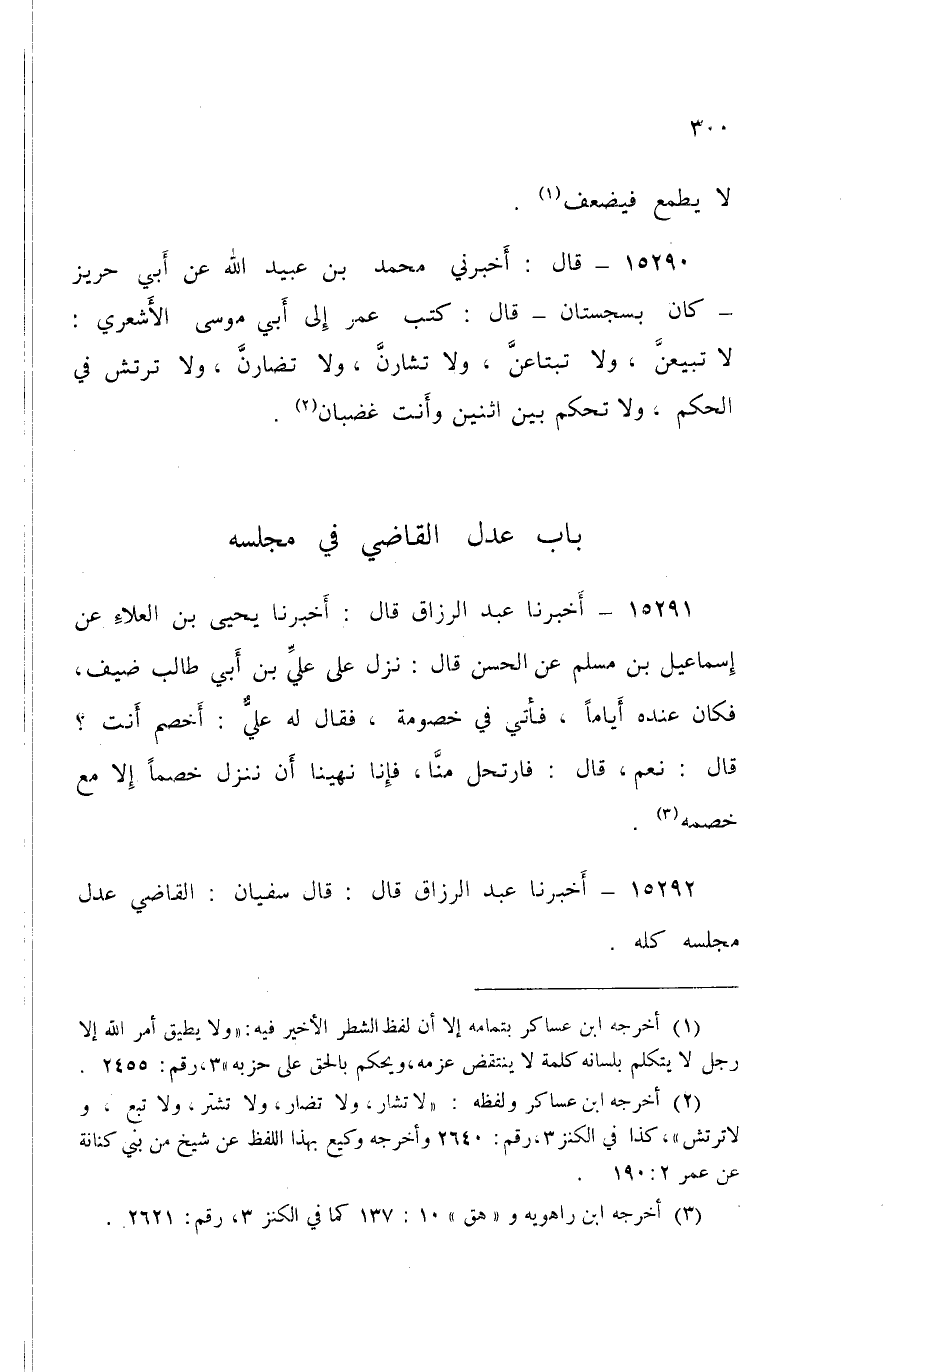 ٣٠٠
لا يطمع فيضعف(١) .
١٥٢٩٠ ـ قال : أَخبرني محمد بن عبيد الله عن أَبي حريز
ـ كان بسجستان ـ قال : كتب عمر إلى أَبي موسى الأَشعري :
لا تبيعنَّ ، ولا تبتاعنَّ ، ولا تشارنَّ ، ولا تضارنَّ ، ولا ترتش في
الحكم ، ولا تحكم بين اثنين وأَنت غضبان(٢) .
باب عدل القاضي في مجلسه
١٥٢٩١ ـ أَخبرنا عبد الرزاق قال : أَخبرنا يحيى بن العلاءِ عن
إسماعيل بن مسلم عن الحسن قال : نزل على عليِّ بن أَبي طالب ضيف ،
فكان عنده أَياماً ، فأتي في خصومة ، فقال له عليٌّ : أَخصم أَنت ؟
قال : نعم ، قال : فارتحل منَّا ، فإنا نهينا أَن ننزل خصماً إلا مع
خصمه(٣) .
١٥٢٩٢ ـ أَخبرنا عبد الرزاق قال : قال سفيان : القاضي عدل
مجلسه كله .
(١) أخرجه ابن عساكر بتمامه إلا أن لفظ الشطر الأخير فيه : «ولا يطيق أمر الله إلا
رجل لا يتكلم بلسانه كلمة لا ينتقض عزمه ، ويحكم بالحق على حزبه» ٣ ، رقم : ٢٤٥٥ .
(٢) أخرجه ابن عساكر ولفظه : «لا تشار ، ولا تضار ، ولا تشتر ، ولا تبع ، و
لا ترتش» ، كذا في الكنز ٣ ، رقم : ٢٦٤٠ وأخرجه وكيع بهذا اللفظ عن شيخ من بني كنانة
عن عمر ٢ : ١٩٠ .
(٣) أخرجه ابن راهويه و «هق» ١٠ : ١٣٧ كما في الكنز ٣ ، رقم : ٢٦٢١ .